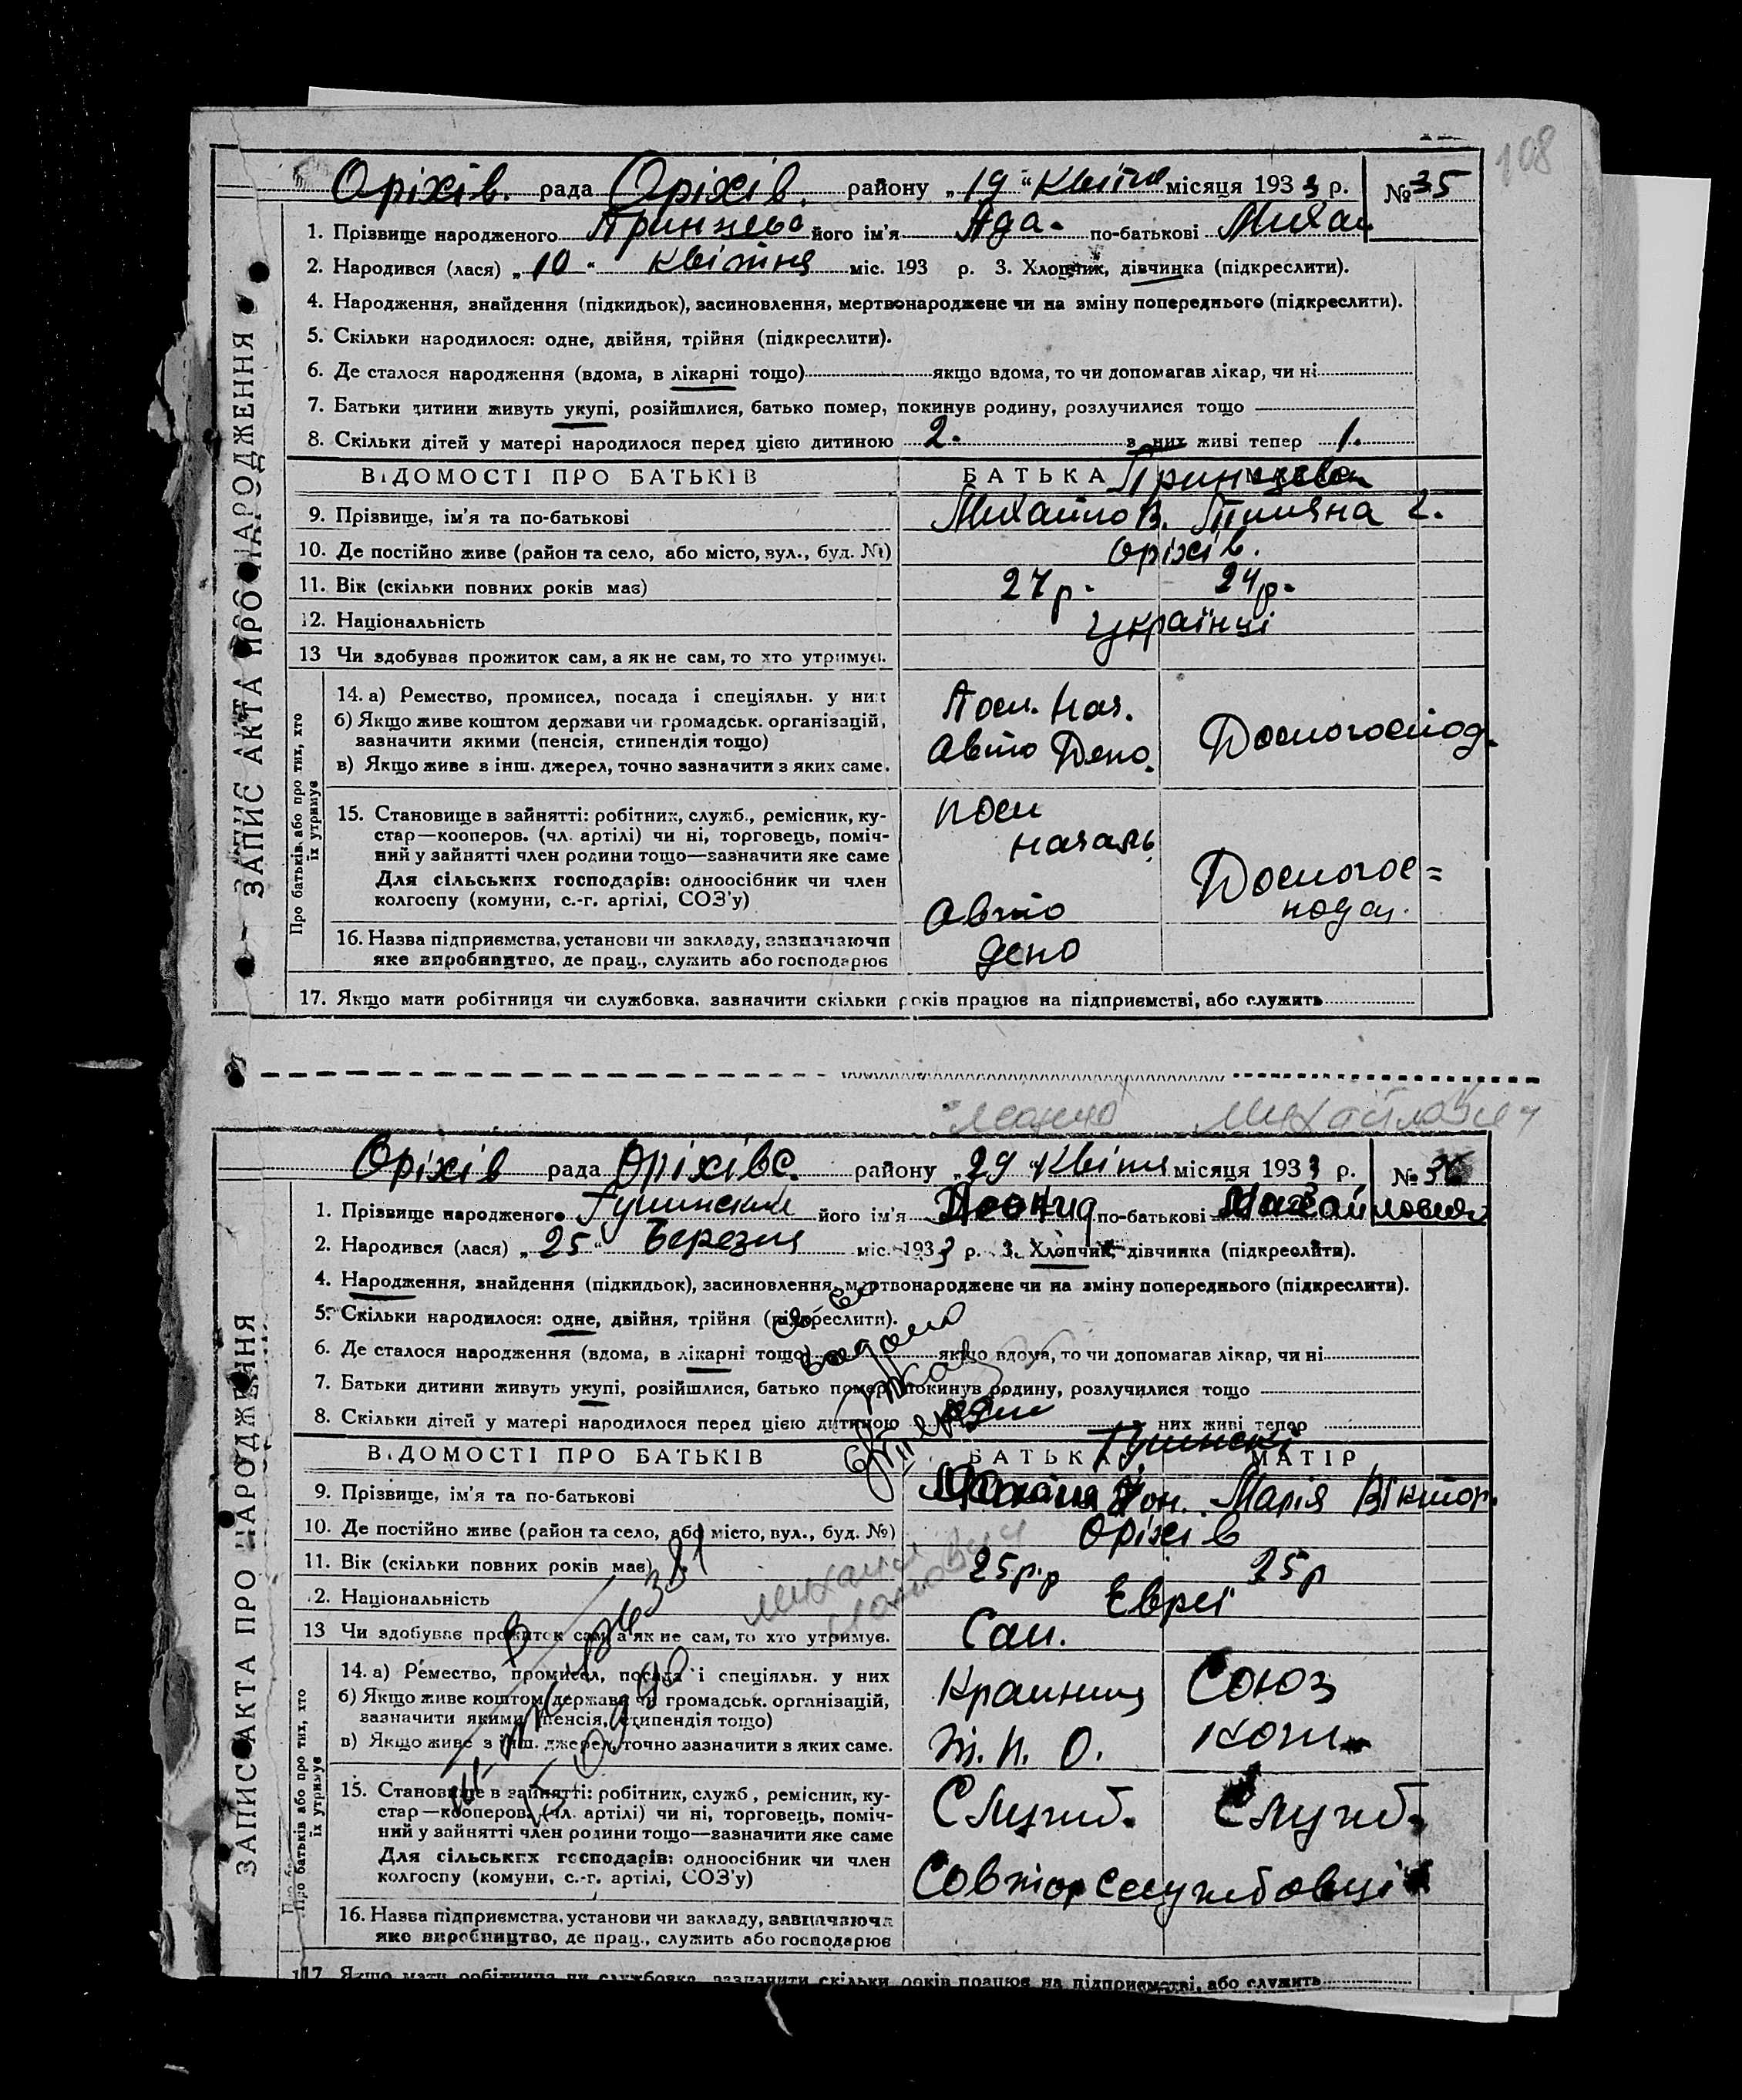 108
Оріхів. рада Оріхів. району „19“ Квітня місяця 1933 р. № 35
1. Прізвище народженого Принцева його ім'я Ада. по-батькові Михай
2. Народився (лася) „10“ квітня міс. 193 р. 3. Хлопчик, дівчинка (підкреслити).
4. Народження, знайдення (підкидьок), засиновлення, мертвонароджене чи на зміну попереднього (підкреслити).
5. Скільки народилося: одне, двійня, трійня (підкреслити).
6. Де сталося народження (вдома, в лікарні тощо) якщо вдома, то чи допомагав лікар, чи ні
7. Батьки дитини живуть укупі, розійшлися, батько помер, покинув родину, розлучилися тощо
8. Скільки дітей у матері народилося перед цією дитиною 2. з них живі тепер 1.
ВІДОМОСТІ ПРО БАТЬКІВ БАТЬКА Принцеви
9. Прізвище, ім'я та по-батькові Михайло В. Тетяна Г.
10. Де постійно живе (район та село, або місто, вул., буд. №) Оріхів.
11. Вік (скільки повних років має) 27р. 24р.
12. Національність Українці
13 Чи здобував прожиток сам, а як не сам, то хто утримує.
14. а) Ремество, промисел, посада і спеціяльн. у них
б) Якщо живе коштом держави чи громадськ. організацій,
зазначити якими (пенсія, стипендія тощо)
в) Якщо живе з інш. джерел, точно зазначити з яких саме.
Пом. Нач. Авто Депо. Домогоспод.
15. Становище в зайнятті: робітник, служб., ремісник, ку-
стар—кооперов. (чл. артілі) чи ні, торговець, поміч-
ний у зайнятті член родини тощо—зазначити яке саме
Для сільських господарів: одноосібник чи член
колгоспу (комуни, с.-г. артілі, СОЗ'у)
пом началь Домогос=
Авто депо
16. Назва підприємства, установи чи закладу, зазначаючи
яке виробництво, де прац., служить або господарює
17. Якщо мати робітниця чи службовка, зазначити скільки років працює на підприємстві, або служить
ЗАПИС АКТА ПРО НАРОДЖЕННЯ
Про батьків, або про тих, хто
їх утримує
Михайлович
Оріхів рада Оріхівс. району „29“ Квітня місяця 1933 р. № 36
1. Прізвище народженого Гушинский його ім'я Леонид по-батькові Михайлович
2. Народився (лася) „25“ Березня міс. 1933 р. 3. Хлопчик, дівчинка (підкреслити).
4. Народження, знайдення (підкидьок), засиновлення, мертвонароджене чи на зміну попереднього (підкреслити).
5. Скільки народилося: одне, двійня, трійня (підкреслити).
6. Де сталося народження (вдома, в лікарні тощо) якщо вдома, то чи допомагав лікар, чи ні
7. Батьки дитини живуть укупі, розійшлися, батько помер, покинув родину, розлучилися тощо
8. Скільки дітей у матері народилося перед цією дитиною них живі тепер
ВІДОМОСТІ ПРО БАТЬКІВ БАТЬКА Гушинскі МАТІР
9. Прізвище, ім'я та по-батькові Марія Віктор.
10. Де постійно живе (район та село, або місто, вул., буд. №) Оріхів
11. Вік (скільки повних років має) 25р.р 25р
12. Національність Евреї
13 Чи здобував прожиток сам, а як не сам, то хто утримує. Сам.
14. а) Ремество, промисел, посада і спеціяльн. у них
б) Якщо живе коштом держави чи громадськ. організацій,
зазначити якими (пенсія, стипендія тощо)
в) Якщо живе з інш. джерел, точно зазначити з яких саме.
Союз
15. Становище в зайнятті: робітник, служб., ремісник, ку-
стар—кооперов. (чл. артілі) чи ні, торговець, поміч-
ний у зайнятті член родини тощо—зазначити яке саме
Для сільських господарів: одноосібник чи член
колгоспу (комуни, с.-г. артілі, СОЗ'у)
Служб. Служб.
Совторслужбовці
16. Назва підприємства, установи чи закладу, зазначаюча
яке виробництво, де прац., служить або господарює
17. Якщо мати робітниця чи службовка, зазначити скільки років працює на підприємстві, або служить
ЗАПИС АКТА ПРО НАРОДЖЕННЯ
Про батьків або про тих, хто
їх утримує